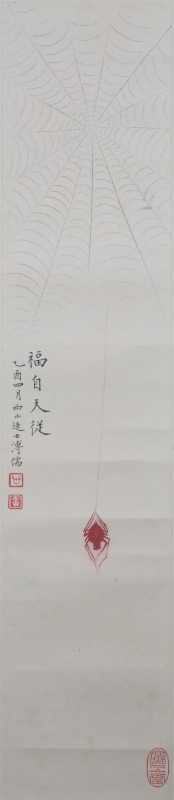 福自天從
乙酉四月西山逸士溥儒